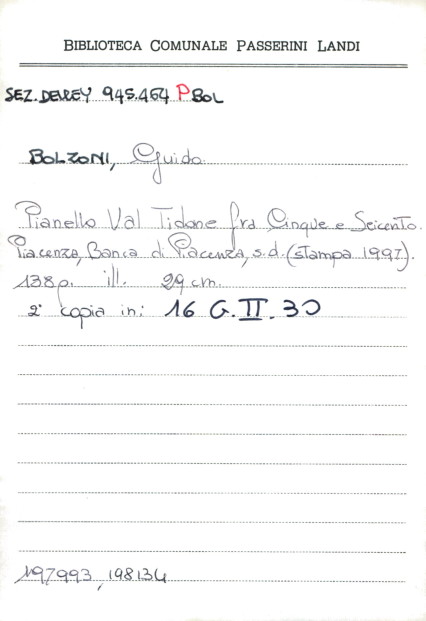 BIBLIOTECA COMUNALE PASSERINI LANDI
SEZ. DEWEY 945.464 P BOL
BOLZONI, Guido
Pianello Val Tidone fra Cinque e Seicento.
Piacenza, Banca di Piacenza, s.d. (stampa 1997).
138 p. ill. 29 cm.
2ª copia in: 16 G. II. 30
197993, 198134